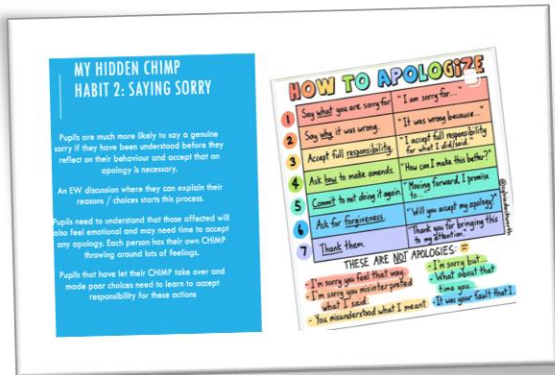 MY HIDDEN CHIMP
HABIT 2: SAYING SORRY
Pupils are much more likely to say a genuine
sorry if they have been understood before they
reflect on their behaviour and accept that an
apology is necessary.
An EW discussion where they can explain their
reasons / choices starts this process.
Pupils need to understand that those affected will
also feel emotional and may need time to accept
any apology. Each person has their own CHIMP
throwing around lots of feelings.
Pupils that have let their CHIMP take over and
made poor choices need to learn to accept
responsibility for these actions
HOW TO APOLOGIZE
1 Say what you are sorry for "I am sorry for..."
2 Say why it was wrong. "It was wrong because..."
3 Accept full responsibility. "I accept full responsibility
for what I did/said."
4 Ask how to make amends. "How can I make this better?"
5 Commit to not doing it again. "Moving forward, I promise
to...."
6 Ask for forgiveness. "Will you accept my apology?"
7 Thank them. "Thank you for bringing this
to my attention."
THESE ARE NOT APOLOGIES:
- I'm sorry you feel that way.
- I'm sorry you misinterpreted
what I said.
- You misunderstood what I meant.
- I'm sorry but...
- What about that
time you...
- It was your fault that I..